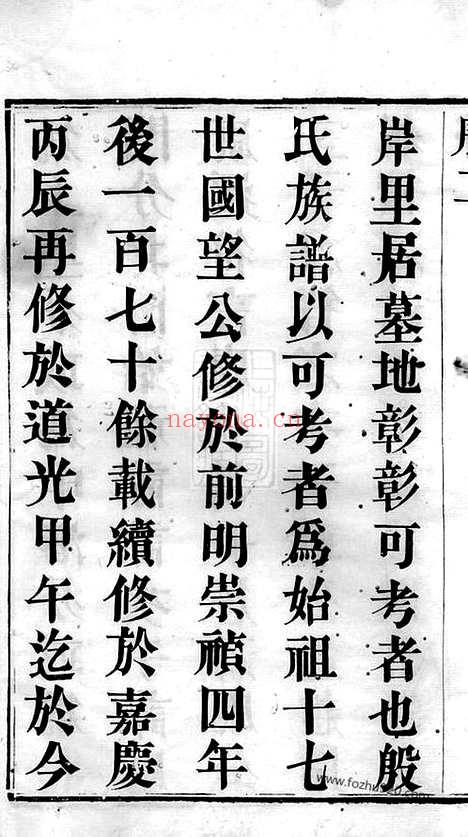 岸里居墓地彰彰可考者也殷
氏族譜以可考者爲始祖十七
世國望公修於前明崇禎四年
後一百七十餘載續修於嘉慶
丙辰再修於道光甲午迄於今
nayona.cn